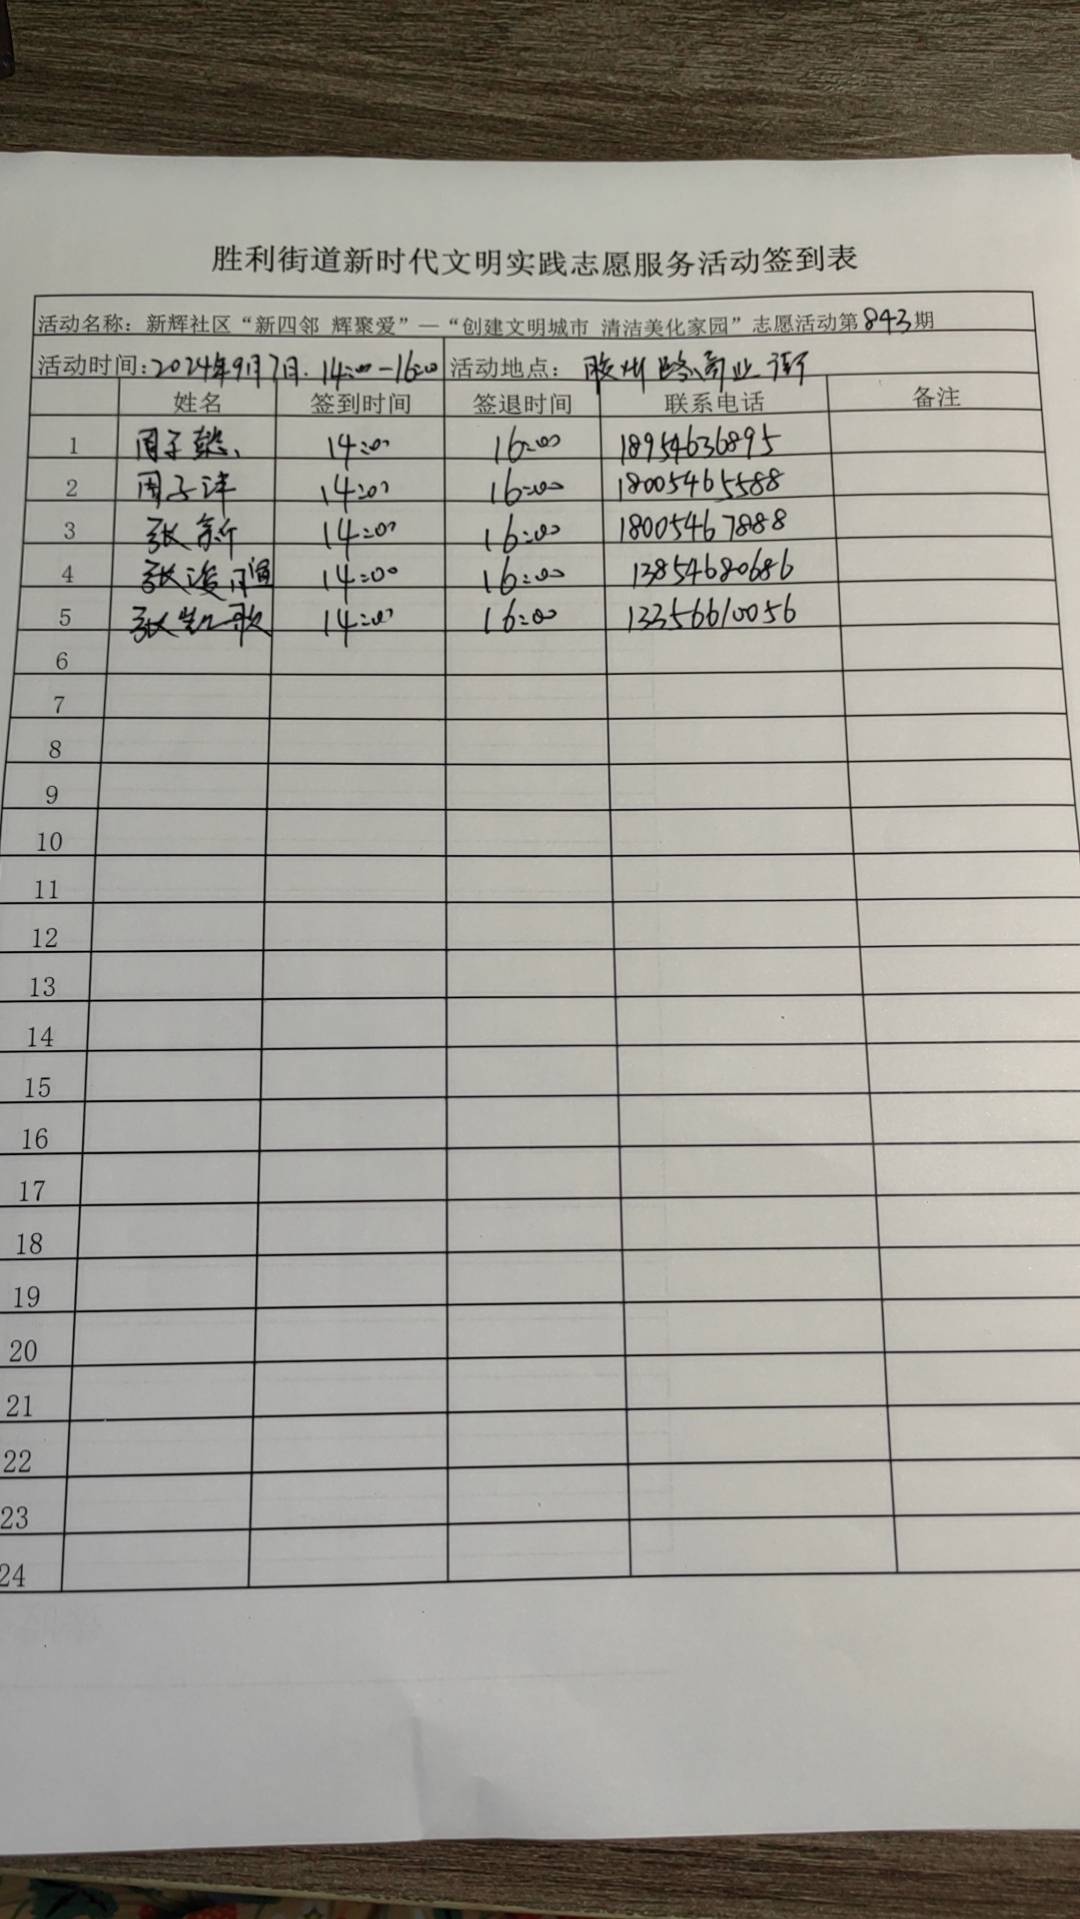 胜利街道新时代文明实践志愿服务活动签到表
活动名称：新辉社区“新四邻 辉聚爱”—“创建文明城市 清洁美化家园”志愿活动第843期
活动时间：2024年9月7日. 14:00-16:00 活动地点： 胶州路商业街
姓名 签到时间 签退时间 联系电话 备注
1 周子懿 14:00 16:00 18954636895
2 周子洋 14:00 16:00 18005465588
3 张新 14:00 16:00 18005467888
4 张 14:00 16:00 13854680686
5 张凯歌 14:00 16:00 13356610056
6
7
8
9
10
11
12
13
14
15
16
17
18
19
20
21
22
23
24